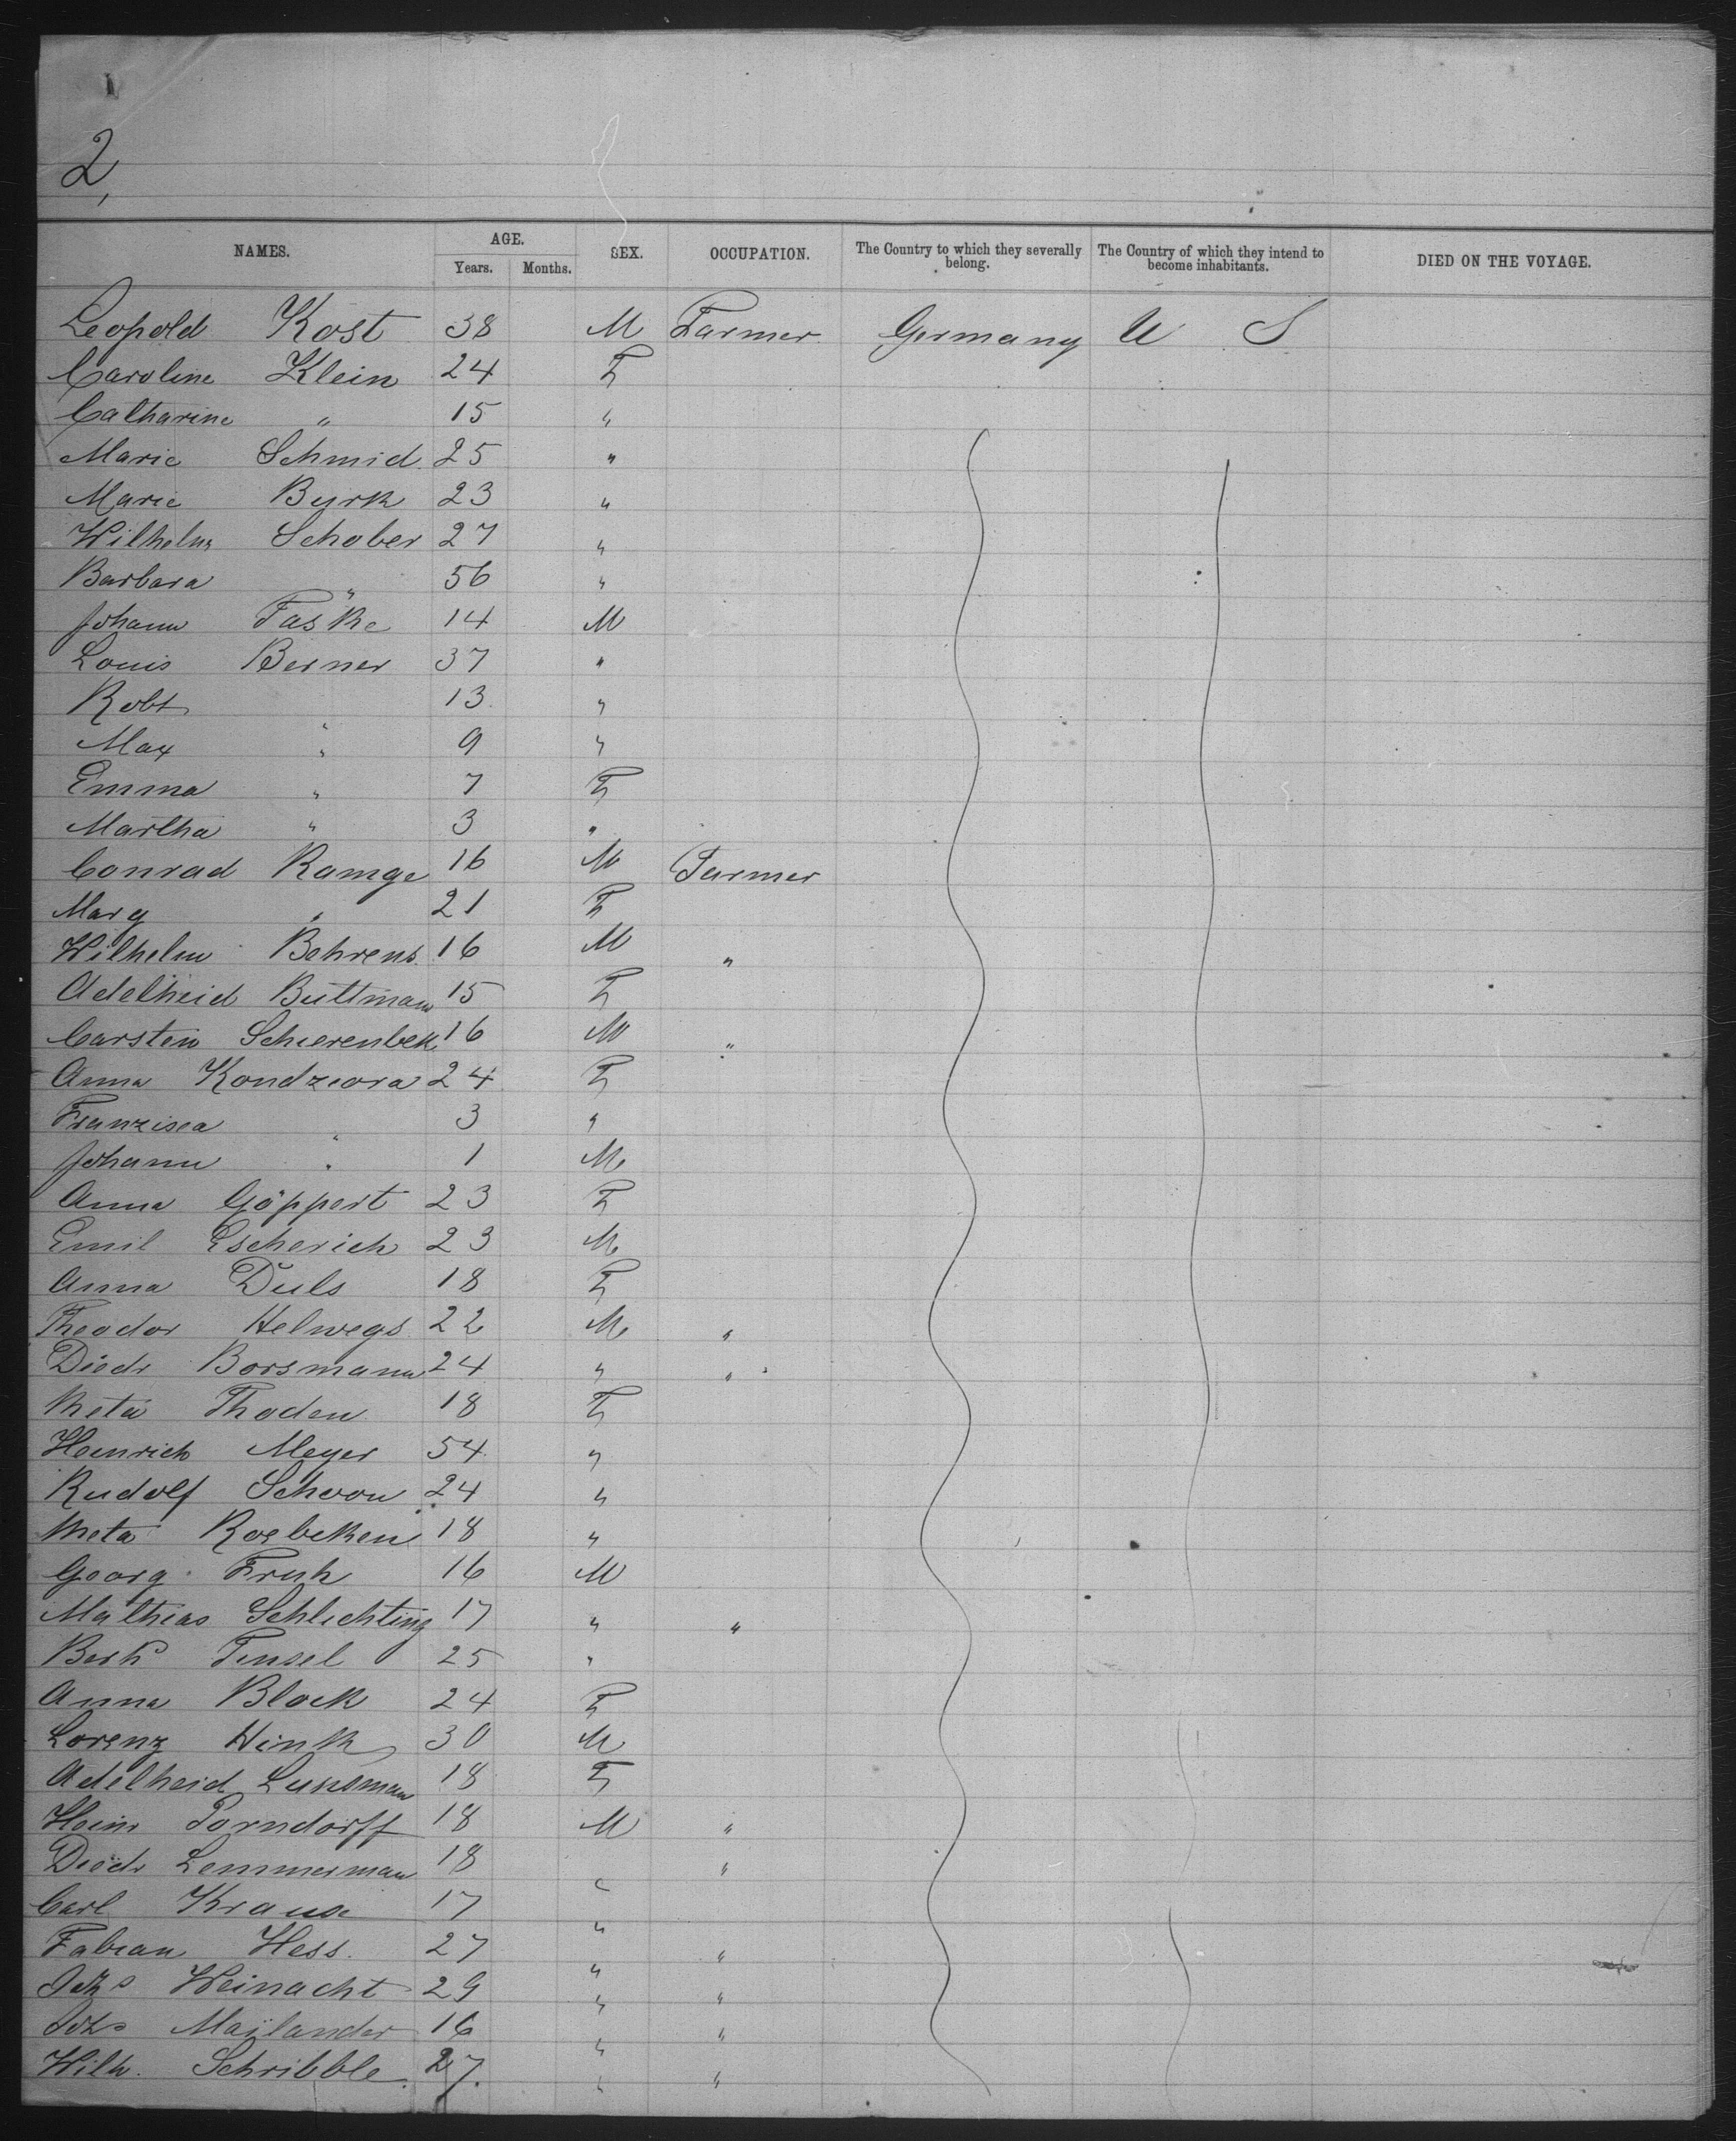 2,
NAMES. AGE. SEX. OCCUPATION. The Country to which they severally belong. The Country of which they intend to become inhabitants. DIED ON THE VOYAGE.
Years. Months.
Leopold Kost 38 M Farmer Germany U S
Caroline Klein 24 F
Catharine " 15 "
Marie Schmid 25 "
Marie Burk 23 "
Wilhelm Schober 27 "
Barbara " 56 "
Johann Taske 14 M
Louis Berner 37 "
Robt " 13 "
Max " 9 "
Emma " 7 F
Martha " 3 "
Conrad Ramge 16 M Farmer
Marg " 21 F
Wilhelm Behrens 16 M "
Adelheid Buttmann 15 F
Carsten Schierenbek 16 M "
Anna Kondziora 24 F
Franzisca " 3 "
Johann " 1 M
Anna Göppert 23 F
Emil Escherich 23 M
Anna Duls 18 F
Theodor Helwegs 22 M "
Diedr Borsmann 24 " "
Meta Thoden 18 F
Heinrich Meyer 54 "
Rudolf Schoon 24 "
Meta Roebeken 18 "
Georg Fruh 16 M
Mathias Schlichting 17 " "
Tensel 25 "
Anna Block 24 F
Lorenz Wink 30 M
Adelheid Lunsman 18 F
Heinr Porndorff 18 M "
Diedr Lemmerman 18 " "
Carl Krause 17 "
Fabian Hess. 27 " "
Johs Weinacht 29 " "
Johs Mailander 16 " "
Wilh. Schribble 27. " "